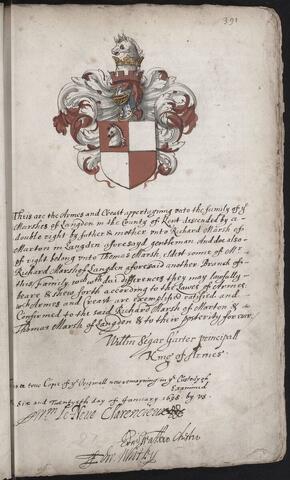 391
Theis are the Armes and Creast apperteyning unto the family of yͤ
Marshes of Langdon in the County of Kent descended by a
double right by father & mother unto Richard Marsh of
Marton in Langden aforesayd gentleman And doe also
of right belong unto Thomas Marsh, eldest sonne of Mr
Richard Marsh of Langden aforesaid another Branch of
this family, wᵗʰ dui differences they may lawfully
beare & shew forth according to the Lawes of Armes
wᶜʰ Armes and Creast are exemplified ratified and
Confirmed to the said Richard Marsh of Marton & to
Thomas Marsh of Langden & to their posterity for ever.
Willm Segar Garter principall
King of Armes.
a true Copie of yͤ Originall now remayning in yͤ Custody of
Examined
Six and Twentyth day of January 1698 by us.
Le Neve Clarenceux